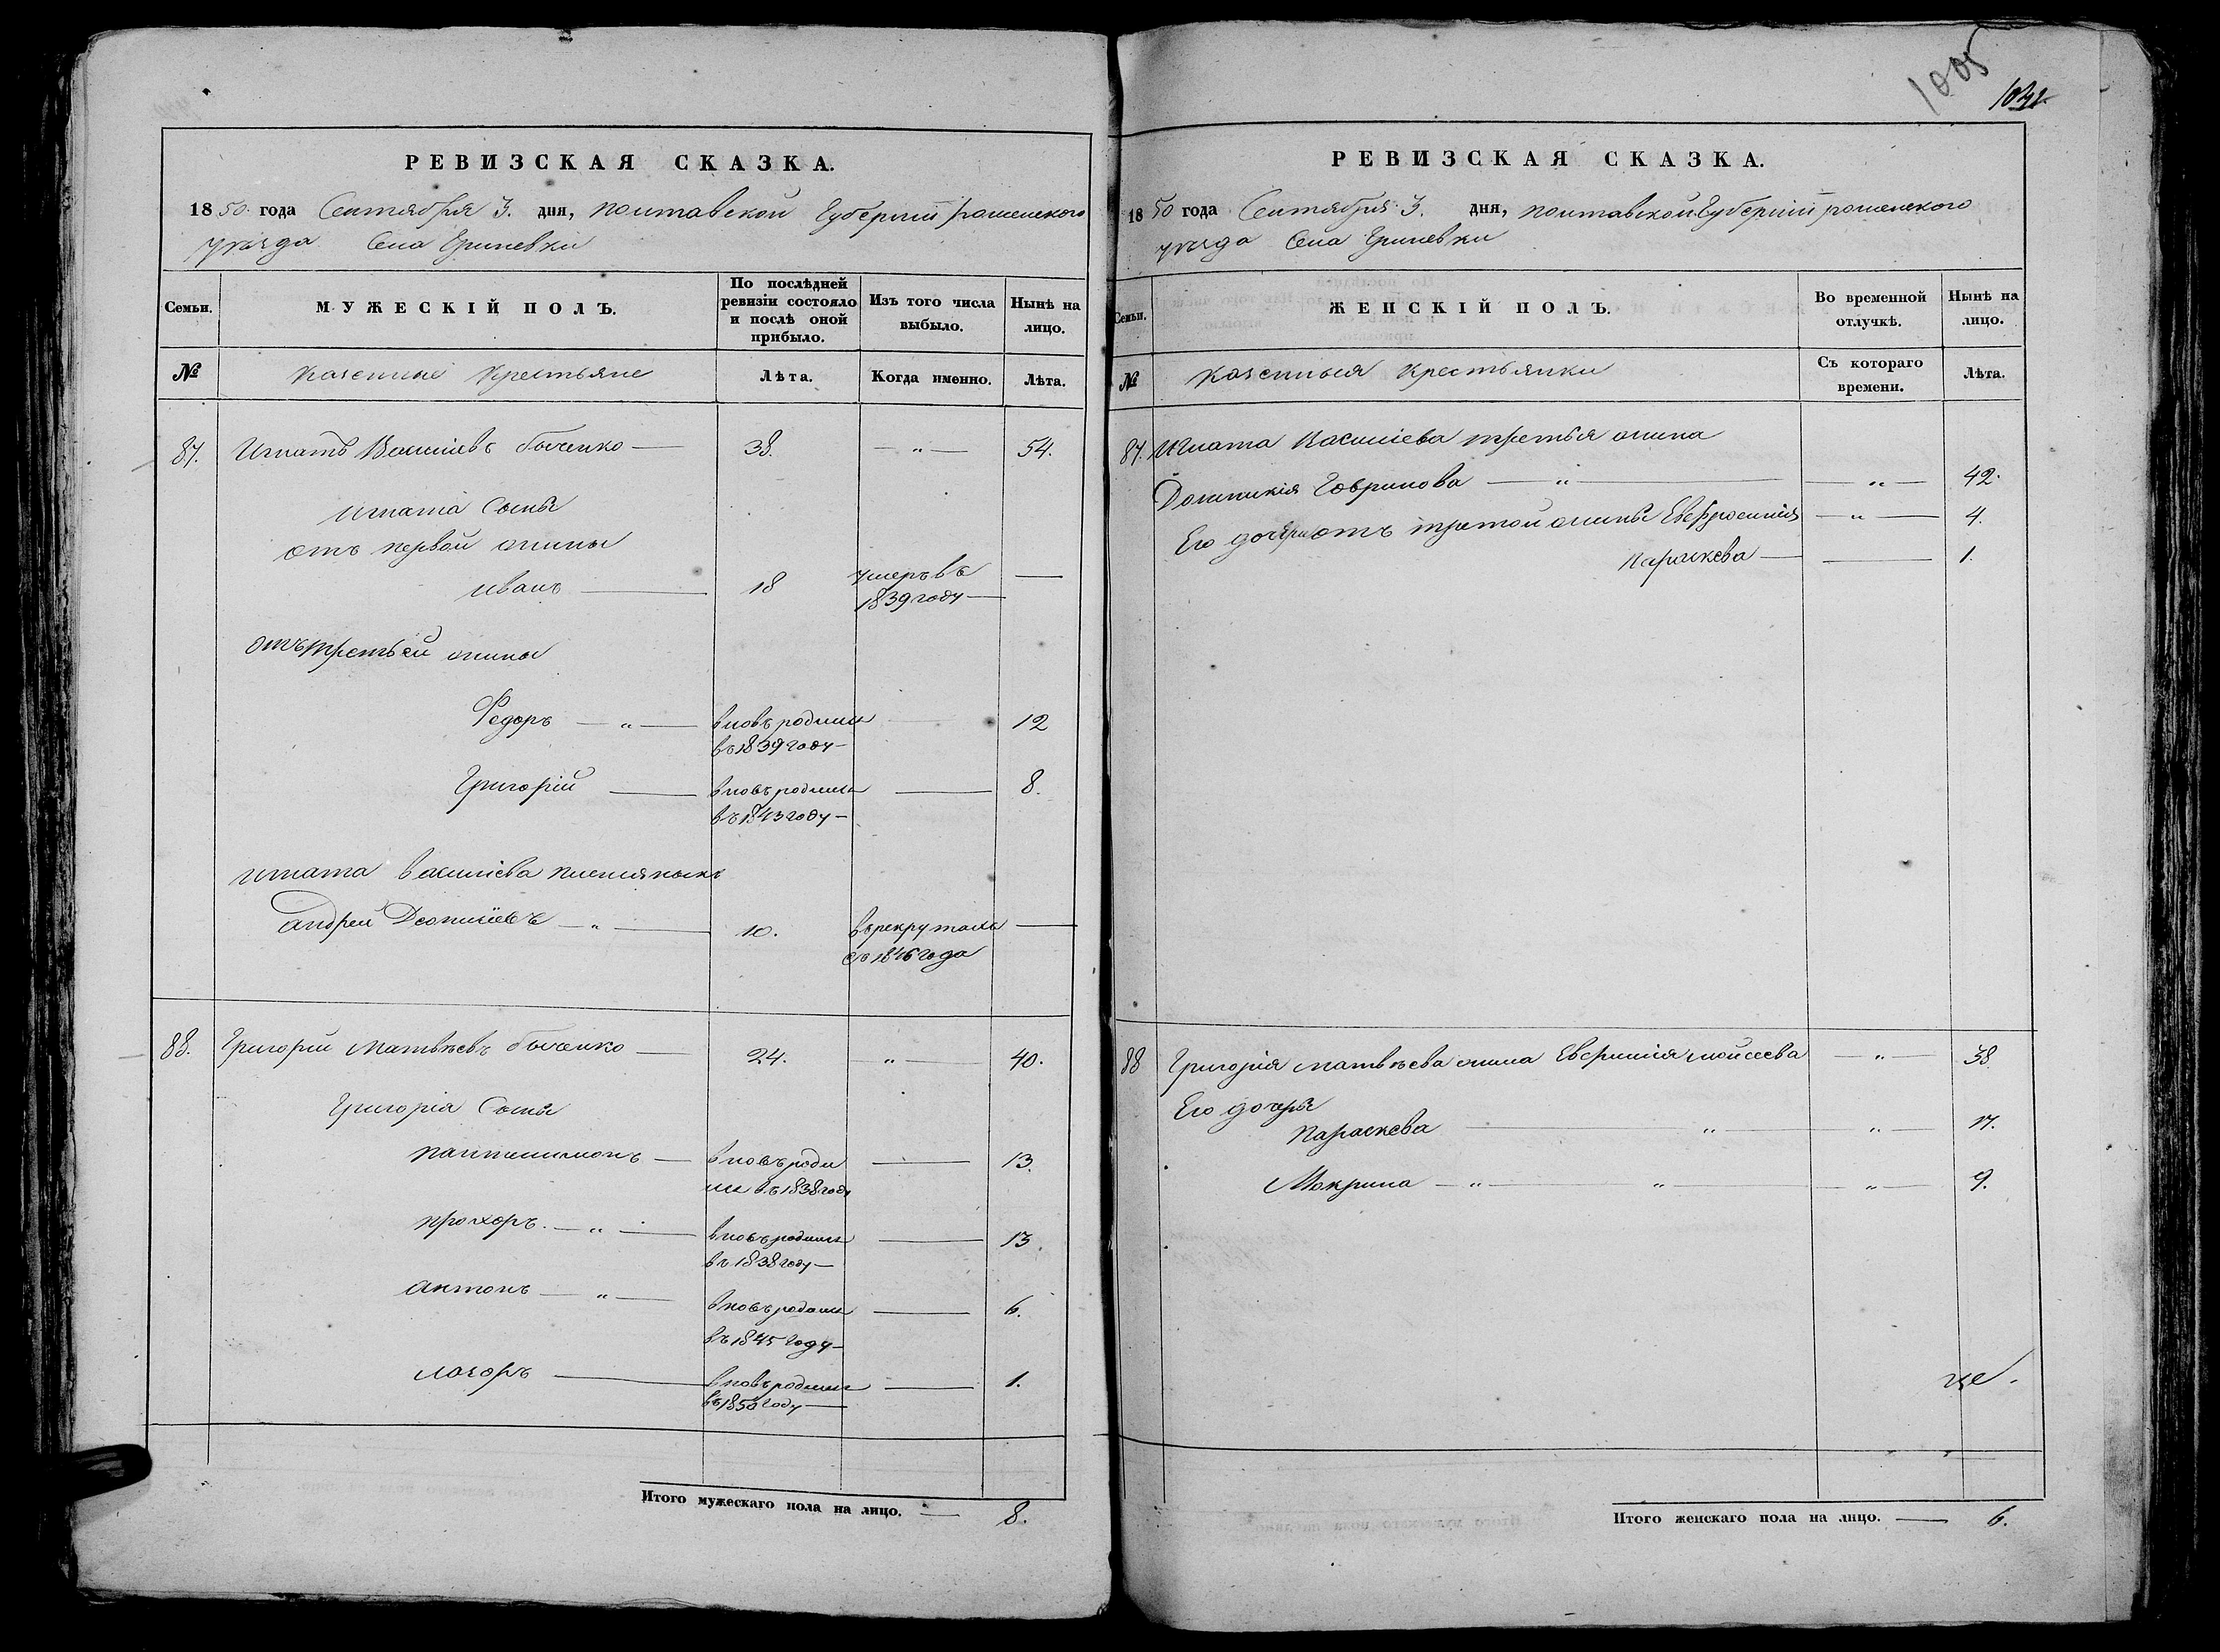 РЕВИЗСКАЯ СКАЗКА.
1850 года Сентября 3. дня, полтавской Губерніи роменского
уѣзда Села Гриневки
Семьи.
МУЖЕСКІЙ ПОЛЪ.
По послѣдней ревизіи состояло и послѣ оной прибыло.
Изъ того числа выбыло.
Нынѣ на лицо.
№
Казенные Крестьяне
Лѣта.
Когда именно.
Лѣта.
87. Игнатъ Василіевъ Быченко — 38. — „ — 54.
игната Сыны
отъ первой жены
иванъ — 18 умеръ въ —
1839 году —
отъ третьей жены
Федоръ — „ — вновь родил 12
въ 1839 году —
Григорій — вновь родился — 8.
въ 1843 году —
игната василіева племянникъ
андрей Леонтіевъ — „ — 10. въ рекрутахъ —
съ 1846 года
88. Григорій Матвѣевъ Быченко — 24. „ — 40.
Григорія Сыны
пантелимонъ — вновь роди — 13.
лся въ 1838 году
прохоръ. — „ — вновь родился — 13.
въ 1838 году —
антонъ — „ — вновь родился — 6.
въ 1845 году —
лазоръ — вновь родился — 1.
въ 1850 году —
Итого мужескаго пола на лицо. — 8.
1005
РЕВИЗСКАЯ СКАЗКА.
1850 года Сентября 3. дня, полтавской Губерніи роменского
уѣзда Села Гриневки
Семьи.
ЖЕНСКІЙ ПОЛЪ.
Во временной отлучкѣ.
Нынѣ на лицо.
№
Казенныя Крестьянки
Съ котораго времени.
Лѣта.
87. Игната Василіева третья жина
Домникія Говрилова — „ — „ — 42.
Его дочери отъ третой жины Евфросинія — „ — 4.
параскева — — 1.
88 Григорія матвѣева жина Евгринія мойсеева — „ — 38.
Его дочеры
Параскева — „ — „ — 17.
Мокрина — „ — „ — „ — 9.
Итого женскаго пола на лицо. — 6.